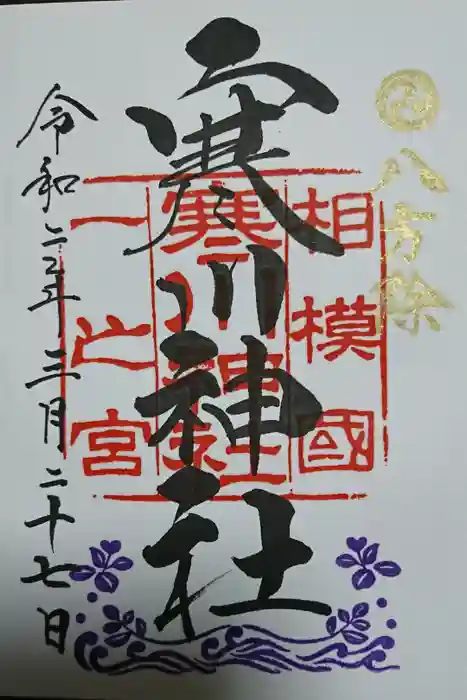 八方除
相模國
寒川神社
一之宮
寒川神社
令和二年三月二十七日